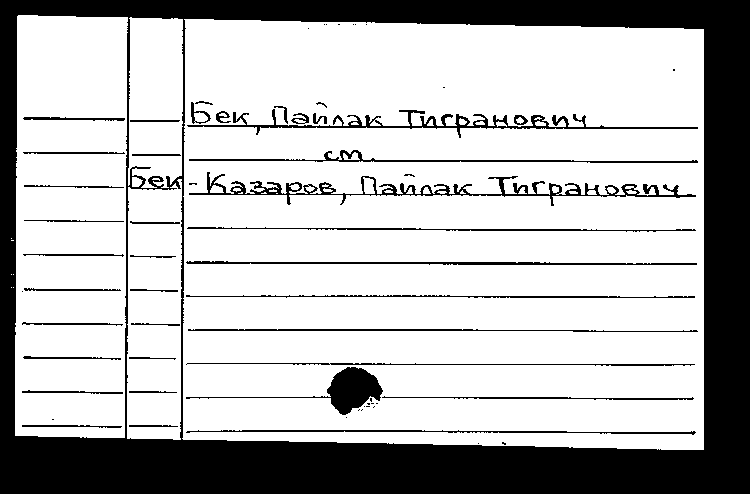 Бек, Пайлак Тигранович.
см.
Бек-Казаров, Пайлак Тигранович.